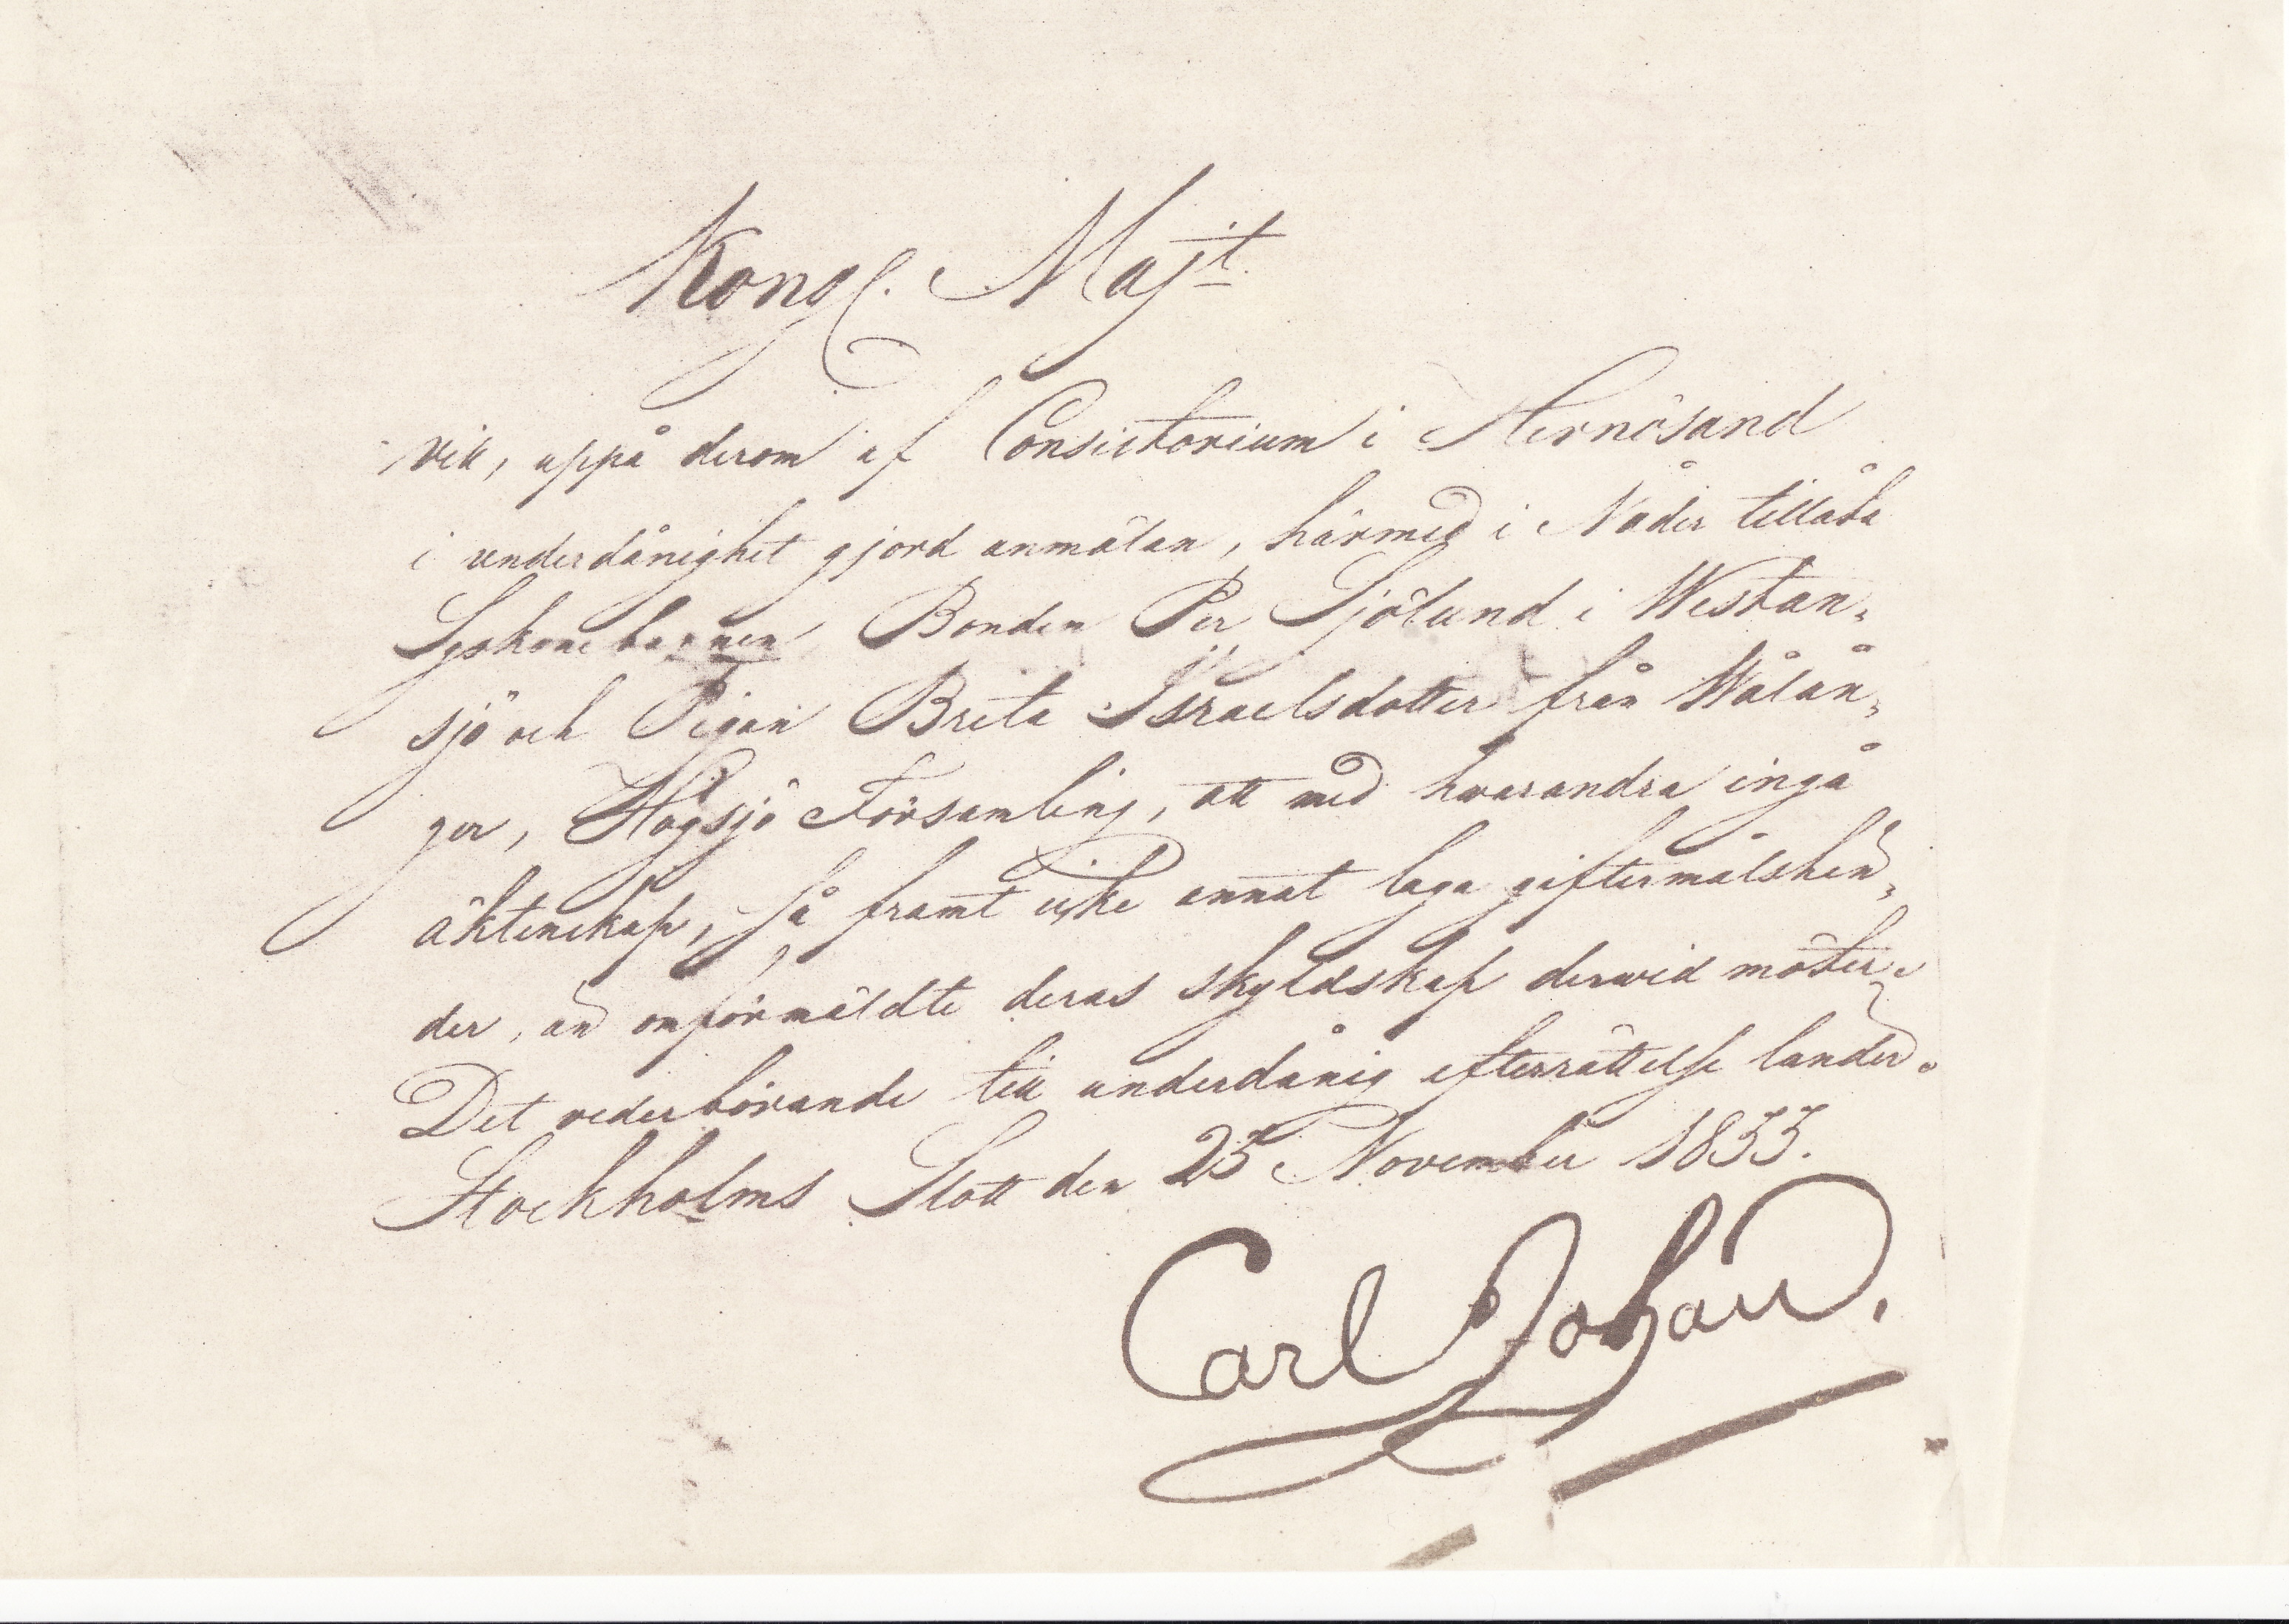 Kongl. Maj:t
vill, uppå derom af Consistorium i Hernösand
i underdånighet gjord anmälan, härmed i Nåder tillåta
Syskonebarnen Bonden Per Sjölund i Westan-
sjö och Pigan Brita Israelsdotter från Wålån-
ger, Högsjö Församling, att med hvarandra ingå
äktenskap, så framt icke annat laga giftermålshin-
der, än omförmäldte deras skyldskap dervid möter.
Det vederbörande till underdånig efterrättelse länder.
Stockholms Slott den 23 November 1833.
Carl Johan.